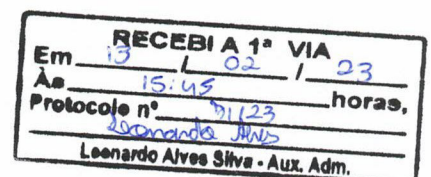 RECEBI A 1ª VIA
Em 13 / 02 / 23
Às 15:45 horas.
Protocolo nº 51/23
Leonardo Alves
Leonardo Alves Silva - Aux. Adm.